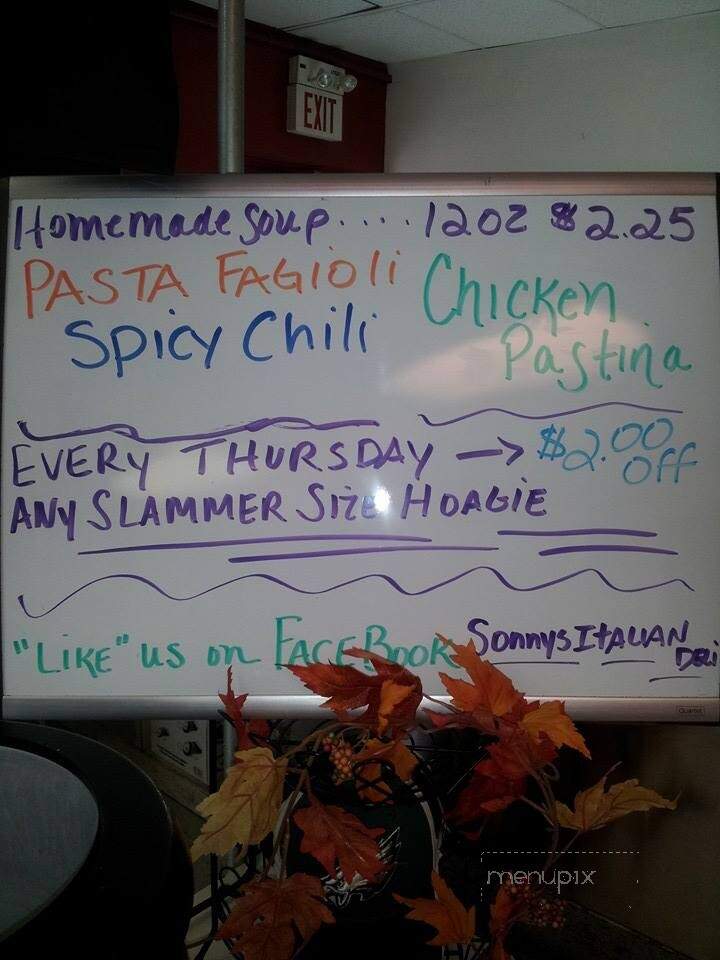 EXIT
Homemade Soup.... 12oz $2.25
PASTA FAGIOLI
Chicken
Spicy Chili
Pastina
EVERY THURSDAY → $2.00
OFF
ANY SLAMMER SIZE HOAGIE
"LIKE" us on FACEBOOK Sonnys ITALIAN
DELI
Quartet
menupix